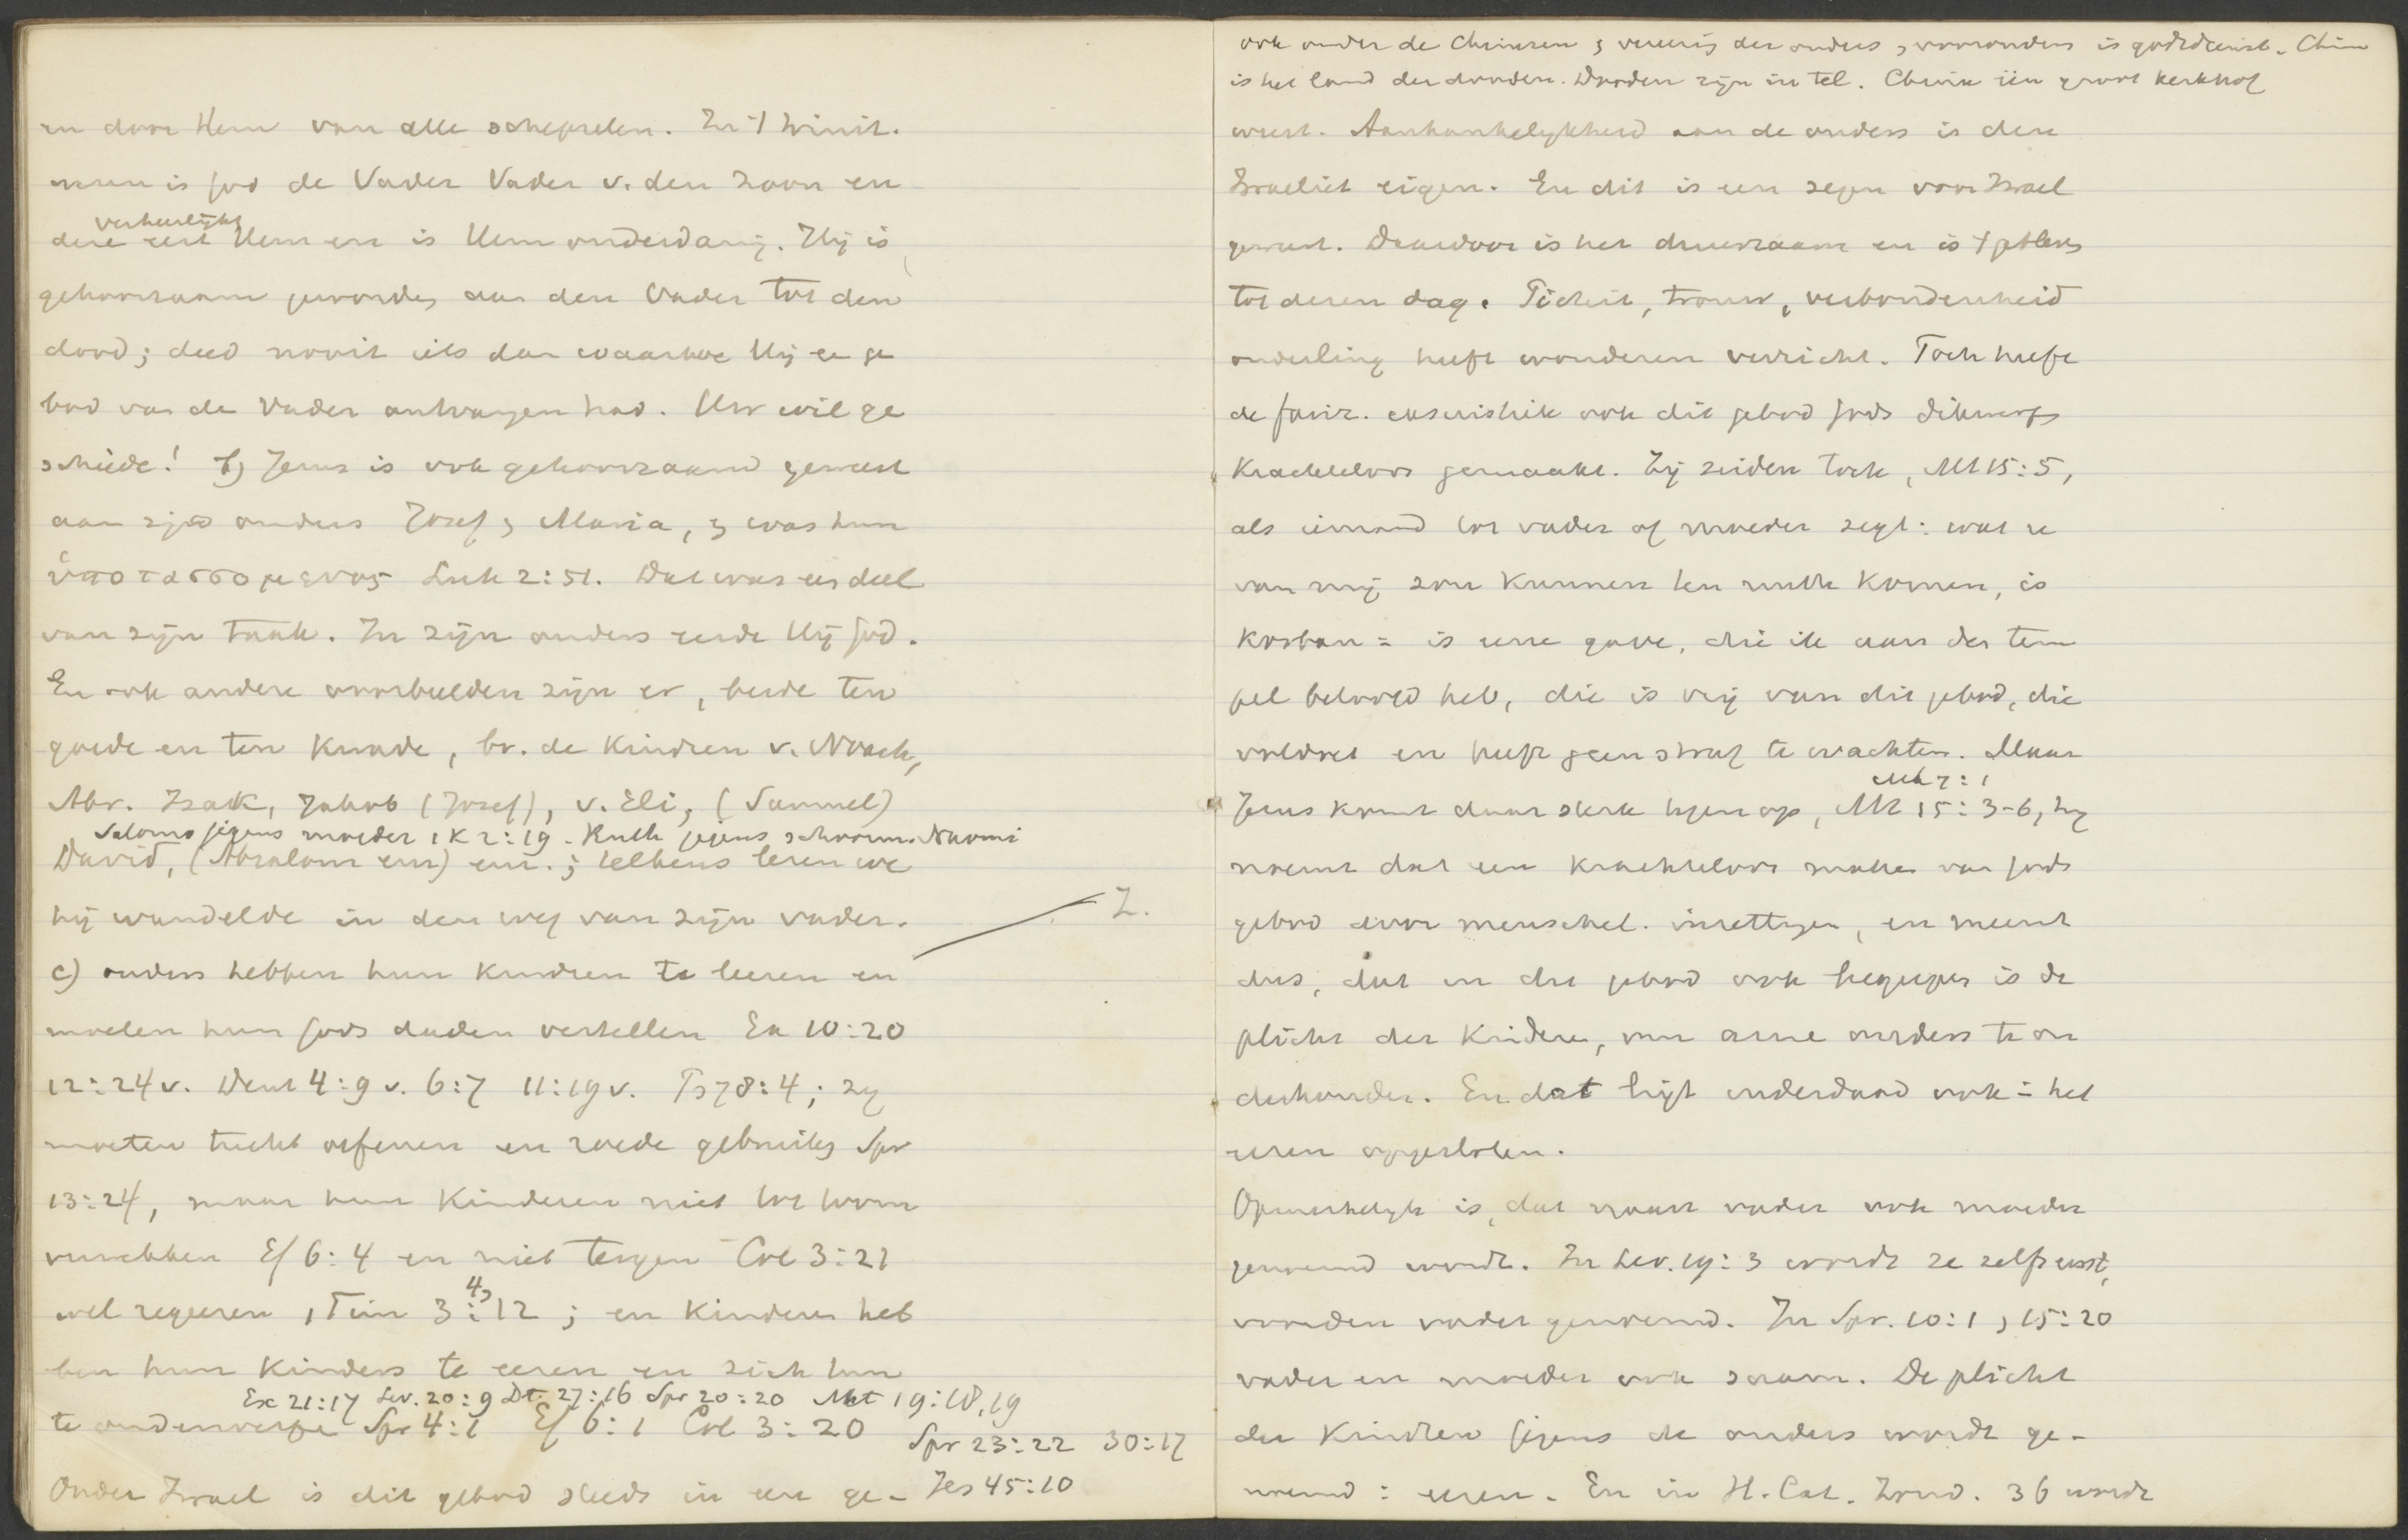 en door Hem van alle schepselen. In 't Trinit.
is God de Vader Vader v. den Zoon en
verheerlijkt
deze eert Hem en is Hem onderdanig. Hij is
gehoorzaam geworden aan den Vader tot den
dood; deed nooit iets dan waartoe Hij een ge
bod van de Vader ontvangen had. Uw wil ge
schiede! b) Jezus is ook gehoorzaamd geweest
aan zijn ouders Jozef & Maria, & was hun
ὑποτασσομενος Luk 2:51. Dat was een deel
van zijn taak. In zijn ouders eerde Hij God.
En ook andere voorbeelden zijn er, beide ten
goede en ten kwade, bv. de kindren v. Noach,
Abr. Izak, Jakob (Jozef), v. Eli, (Samuel)
Salomo jegens moeder 1 K 2:19 - Ruth jegens schoonm. Naomi
David, (Absalom enz) enz.; telkens lezen we
hij wandelde in den weg van zijn vader.
Z.
c) ouders hebben hun kindren te leeren en
moeten hun Gods daden vertellen Ex 10:20
12:24v. Deut 4:9 v. 6:7 11:19v. Ps 78:4; zij
moeten tucht oefenen en roede gebruiken Spr
13:24, maar hun kinderen niet tot toorn
verwekken Ef 6:4 en niet tergen Col 3:21
4,
wel regeeren 1 Tim 3:12; en kinderen heb
ben hun kinders te eeren en zich hun
Ex 21:17 Lev. 20:9 Dt. 27:16 Spr 20:20 Mt 19:18,19
te onderwerpen Spr 4:1 Ef 6:1 Col 3:20
Spr 23:22 30:17
Onder Israel is dit gebod steeds in eere ge-
Jes 45:10
ook onder de Chinezen; vereerig der ouders, voorouders is godsdienst. China
is het land der dooden. Dooden zijn in tel. China één groot kerkhof
weest. Aanhankelijkheid aan de ouders is den
Israeliet eigen. En dit is een zegen voor Israel
geweest. Daardoor is het duurzaam en is 't gebleven
tot dezen dag. Pieteit, trouw, verbondenheid
onderling heeft wonderen verricht. Toch heeft
de fariz. casuistiek ook dit gebod Gods dikwerf
krachteloos gemaakt. Zij zeiden toch, Mt 15:5,
als iemand tot vader of moeder zegt: wat u
van mij zou kunnen ten nutte komen, is
korban = is eene gave, die ik aan den tem
pel beloofd heb, die is vrij van dit gebod, die
voldoet en heeft geen straf te wachten. Maar
Mk 7:1
Jezus komt daar sterk tegen op, Mt 15:3-6, hij
noemt dat een krachteloos maken van Gods
gebod door menschel. inzettingen, en meent
dus, dat in dit gebod ook begrepen is de
plicht der kinderen, om arme ouders te on
derhouden. En dat ligt inderdaad ook in het
eeren opgesloten.
Opmerkelijk is, dat naast vader ook moeder
genoemd wordt. In Lev. 19:3 wordt ze zelfs eerst,
voor den vader genoemd. In Spr. 10:1, 15:20
vader en moeder ook saam. De plicht
der kindren jegens de ouders wordt ge-
noemd: eeren. En in H. Cat. Zond. 36 wordt